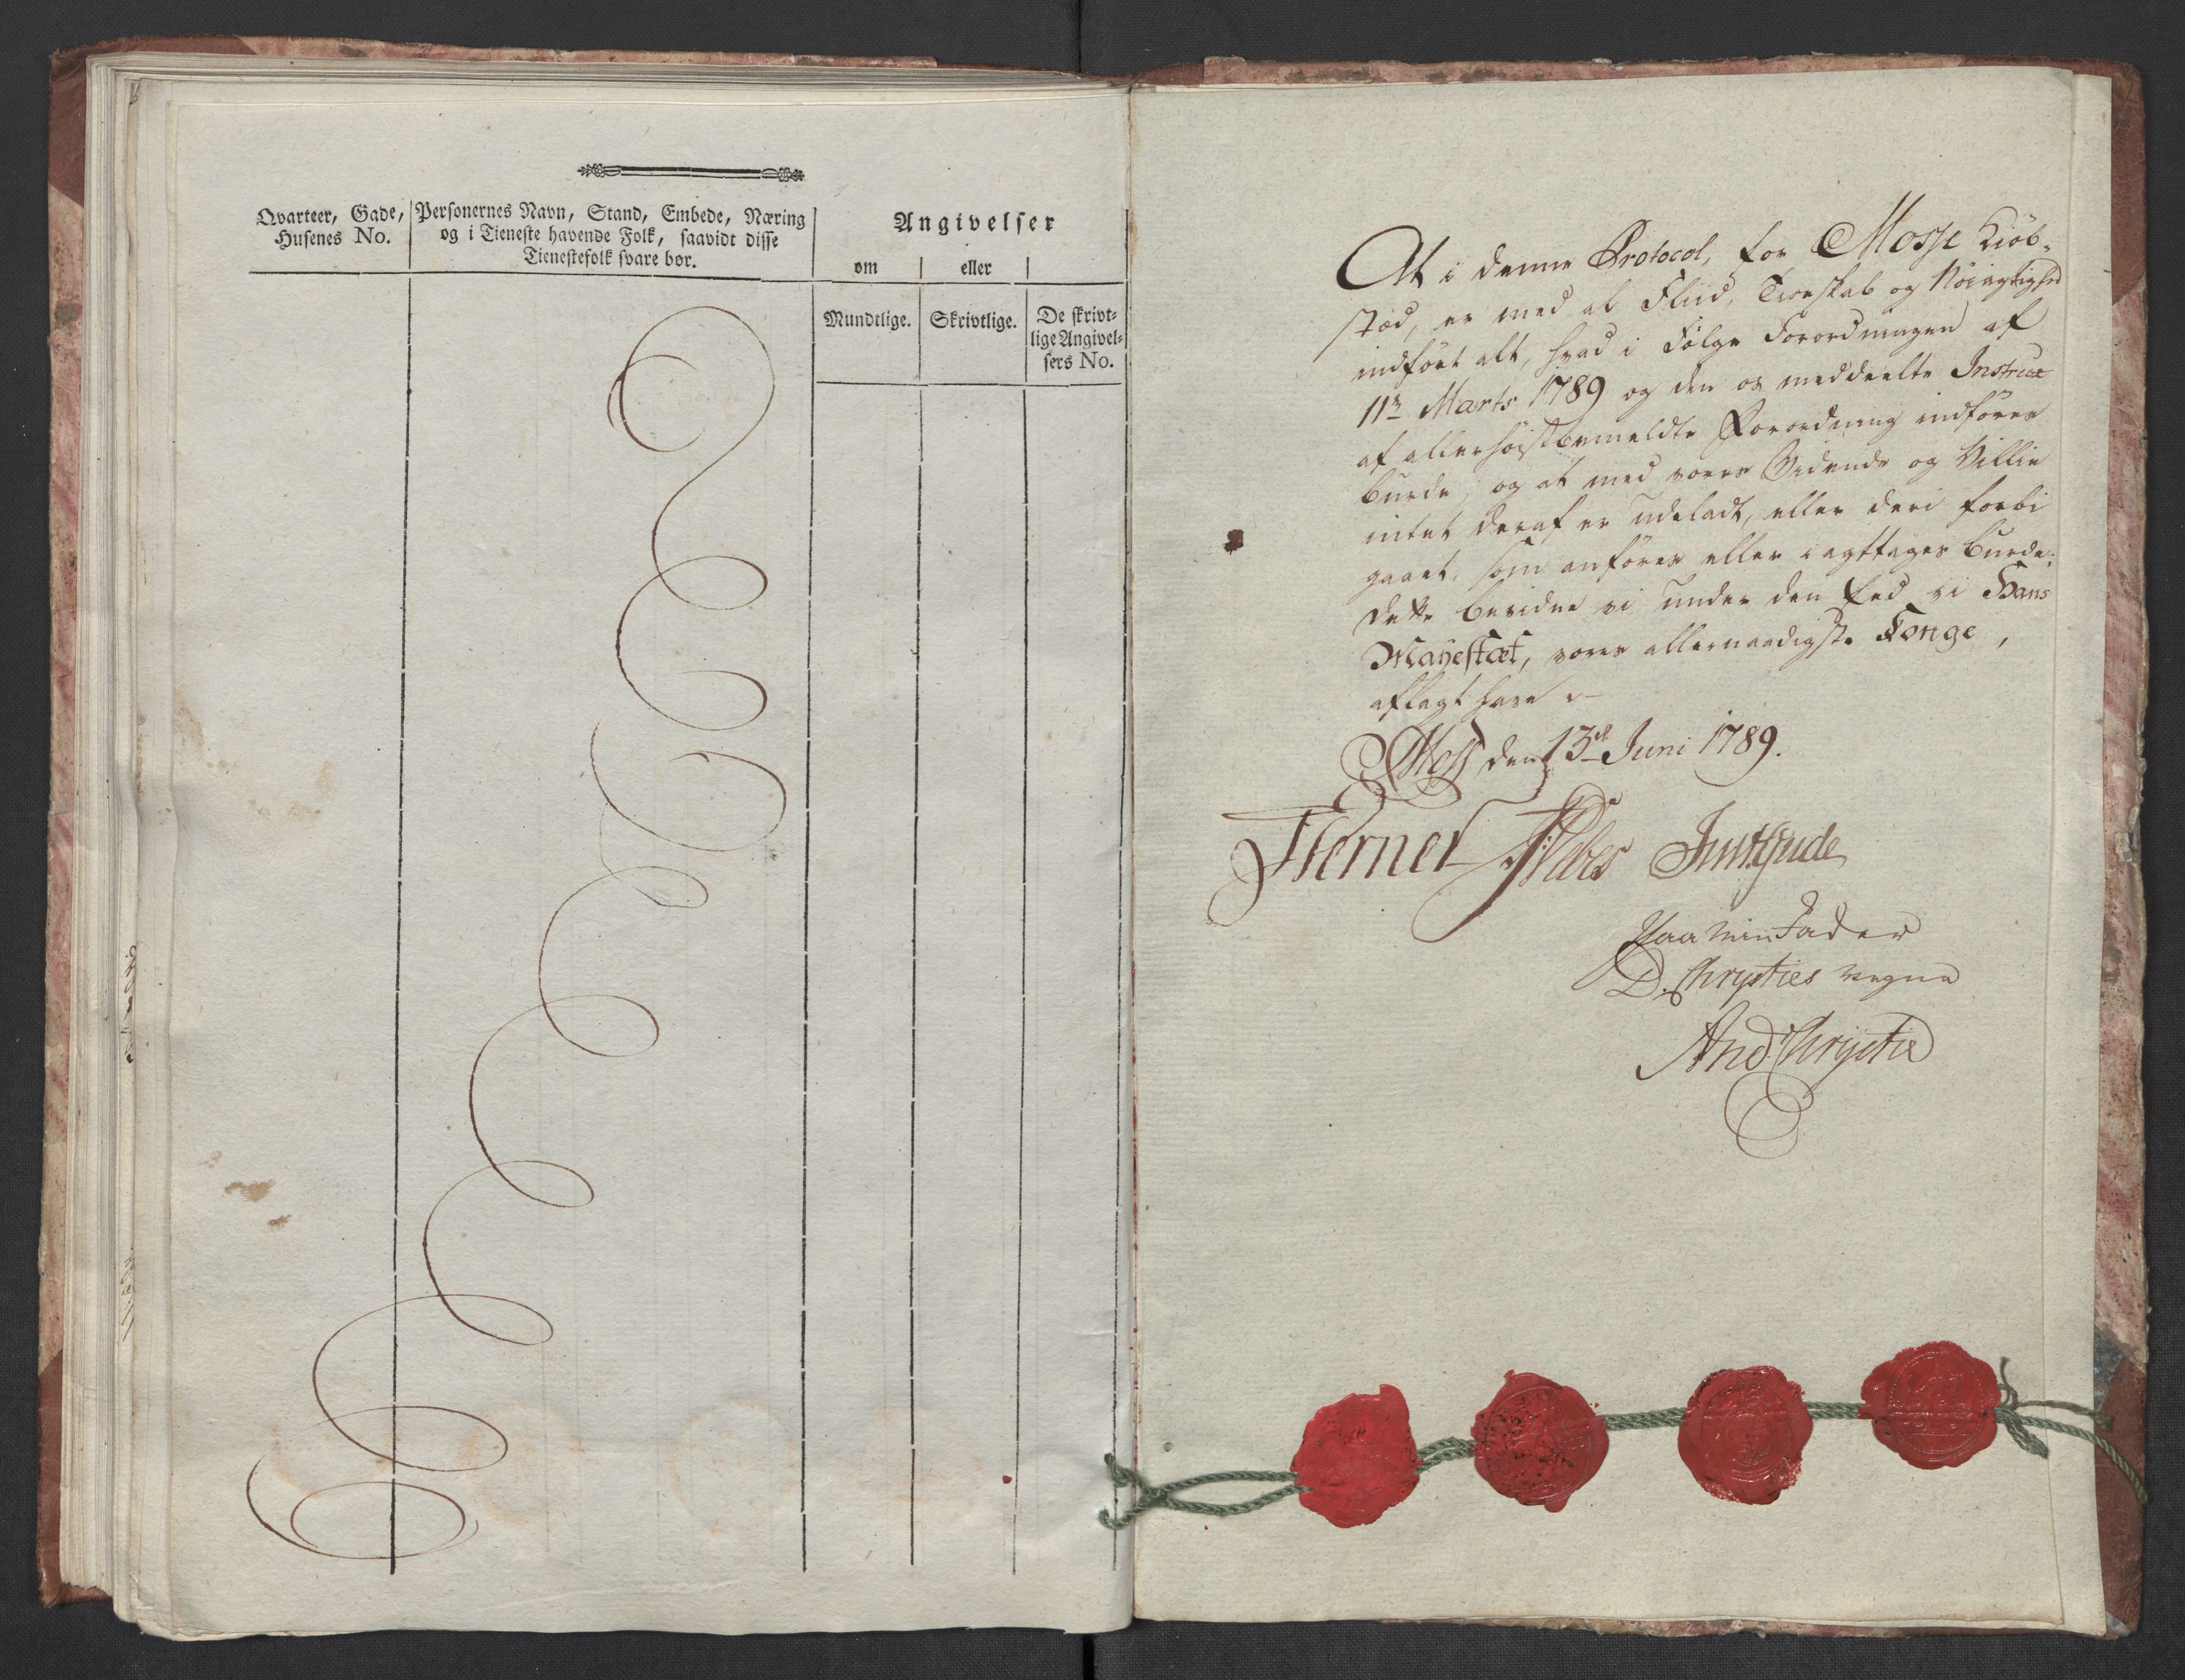 Qvarteer, Gade,
Husenes No.
Personernes Navn, Stand, Embede, Næring
og i Tieneste havende Folk, saavidt disse
Tienestefolk svare bør.
Angivelser
om eller
Mundtlige.
Skrivtlige.
De skrivt-
lige Angivel-
sers No.
At i denne Protocol, for Mosse Kiöb-
stæd, er med al Fliid, Troeskab og Nöiagtighed
indfört alt, hvad i Fölge Forordningen af
11te Marts 1789 og den os meddeelte Instrux
af allerhöistbemeldte Forordning indföres
burde, og at med vores Vidende og Villie
intet deraf er udeladt, eller deri forbi
gaaet, som anföres eller iagttages burde;
Dette bevidne vi under den Eed vi Hans
Mayestæt, vores allernaadigste Konge,
aflagt have
Moss den 13de Juni 1789.
Werner
Paa min Fader
D. Chrysties Vegne
And: Chrystie